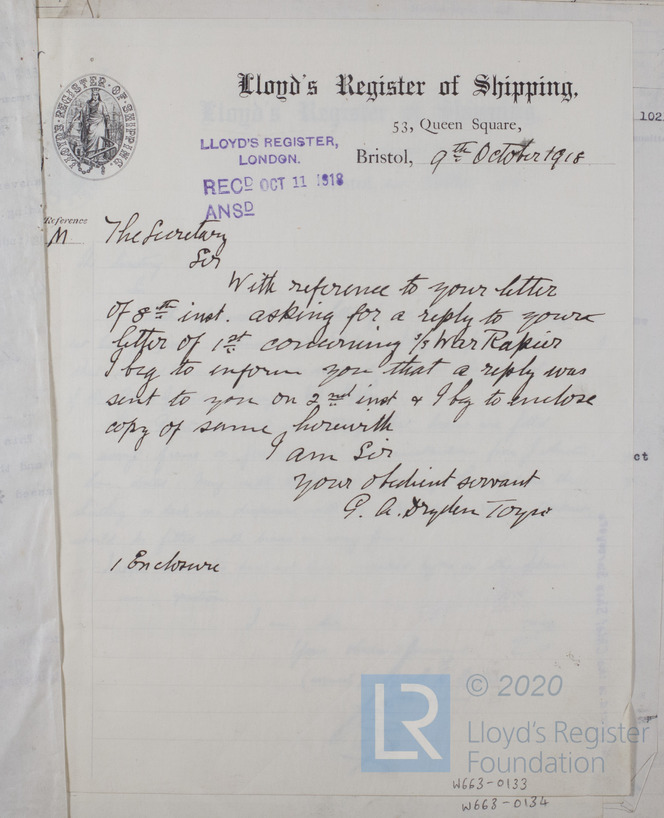 Lloyd's Register of Shipping,
LLOYDS·REGISTER·OF·SHIPPING
53, Queen Square,
Bristol, 9th October 1918
LLOYD'S REGISTER,
LONDON.
RECD OCT 11 1918
ANSD
102
Reference
M
The Secretary
Sir
With reference to your letter
of 8th inst. asking for a reply to yours
letter of 1st concerning s/s War Rapier
I beg to inform you that a reply was
sent to you on 2nd inst & I beg to enclose
copy of same herewith
I am Sir
your obedient servant
Dryden
1 Enclosure
ct
LR
© 2020
Lloyd's Register
Foundation
W663-0133
W663-0134